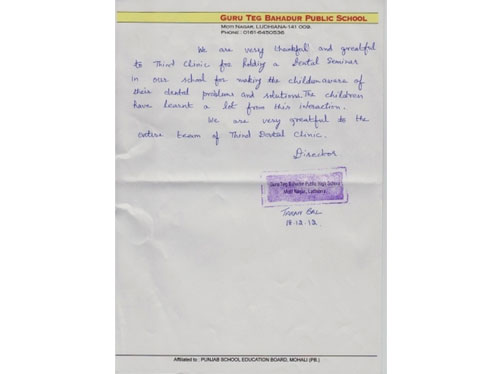 GURU TEG BAHADUR PUBLIC SCHOOL
MOTI NAGAR, LUDHIANA-141 009.
PHONE : 0161-6450536
We are very thankful and greatful
to Thind Clinic for holding a Dental Seminar
in our school for making the children aware of
their dental problems and solutions. The children
have learnt a lot from this interaction.
We are very greatful to the
entire team of Thind Dental Clinic.
Director
Guru Teg Bahadur Public High School
Moti Nagar, Ludhiana.
18.12.12
Affiliated to : PUNJAB SCHOOL EDUCATION BOARD, MOHALI (PB.)